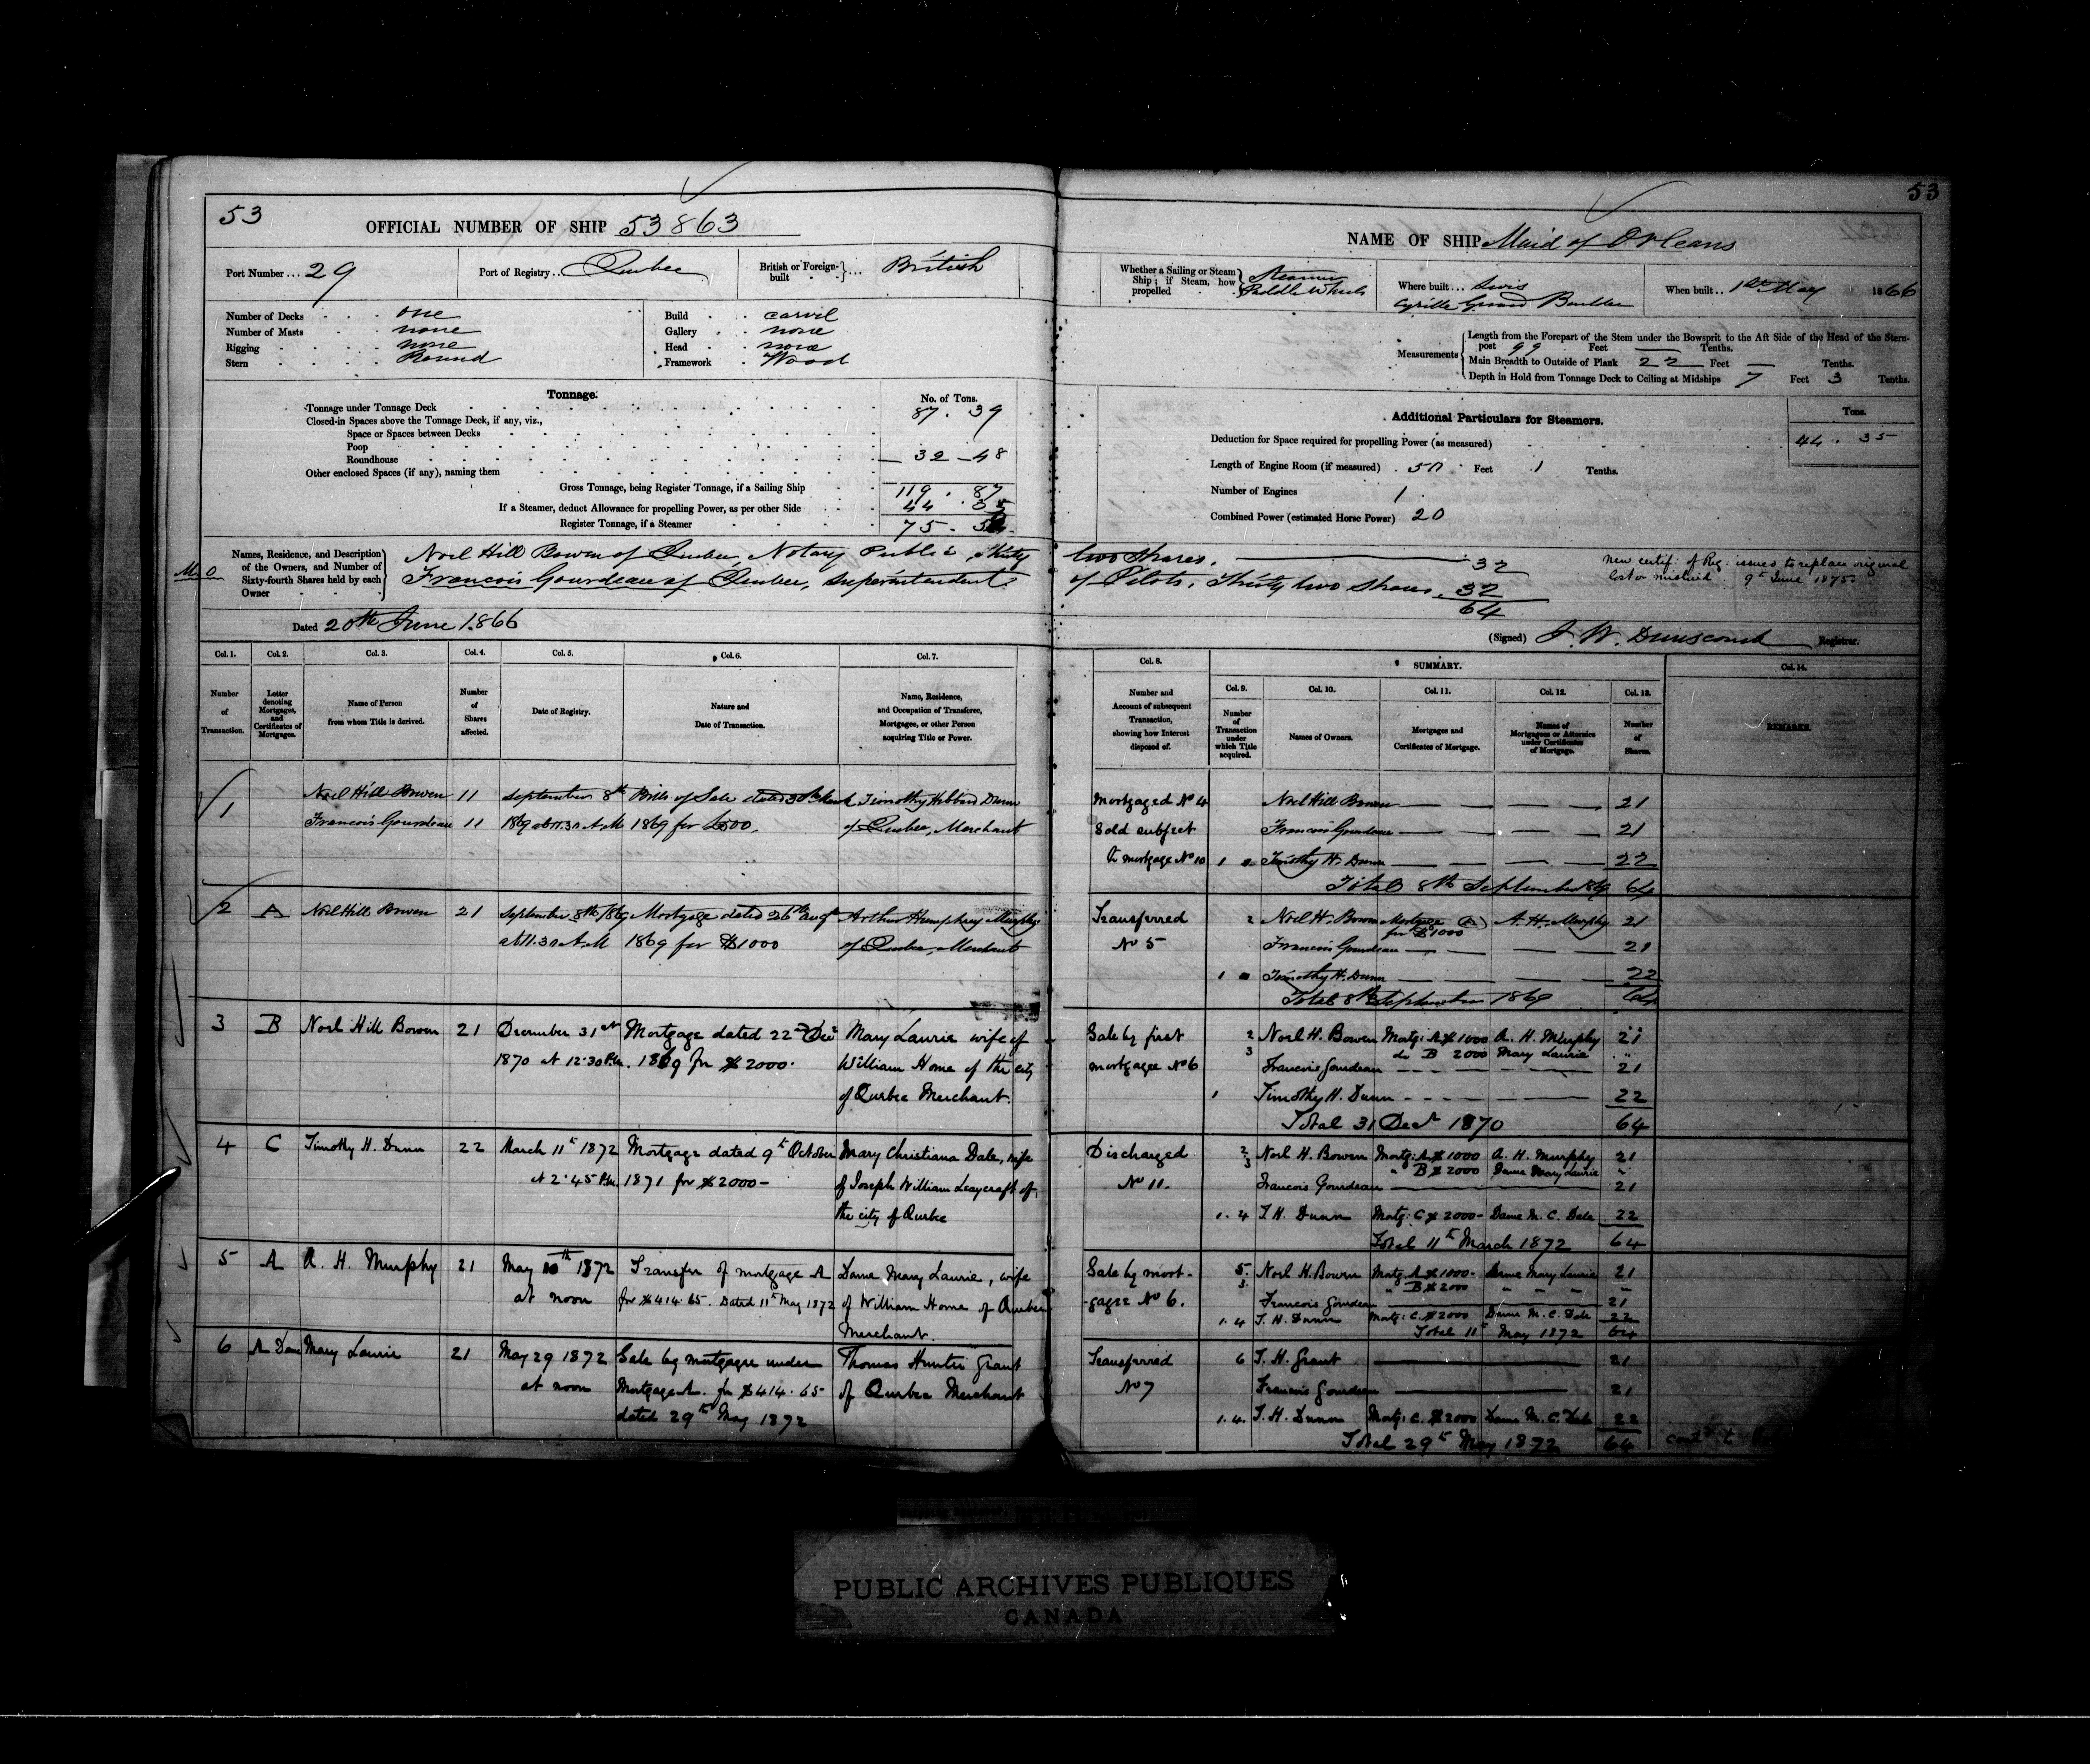 53
OFFICIAL NUMBER OF SHIP 53863
Port Number ... 29
Port of Registry ... Quebec
British or Foreign-built ... British
Number of Decks one
Number of Masts none
Rigging none
Stern Round
Build carvil
Gallery none
Head none
Framework Wood
Tonnage.
No. of Tons.
Tonnage under Tonnage Deck 87 . 39
Closed-in Spaces above the Tonnage Deck, if any, viz.,
Space or Spaces between Decks
Poop
Roundhouse 32 - 48
Other enclosed Spaces (if any), naming them
Gross Tonnage, being Register Tonnage, if a Sailing Ship 119 . 87
If a Steamer, deduct Allowance for propelling Power, as per other Side 44 . 35
Register Tonnage, if a Steamer 75 .
Names, Residence, and Description of the Owners, and Number of Sixty-fourth Shares held by each Owner
Noel Hill Bowen of Quebec, Notary Public, Thirty
Francois Gourdeau of Quebec, Superintendent
Dated 20th June 1866
Col. 1. Col. 2. Col. 3. Col. 4. Col. 5. Col. 6. Col. 7.
Number of Transaction.
Letter denoting Mortgages, and Certificates of Mortgages.
Name of Person from whom Title is derived.
Number of Shares affected.
Date of Registry.
Nature and Date of Transaction.
Name, Residence, and Occupation of Transferee, Mortgagee, or other Person acquiring Title or Power.
1 Noel Hill Bowen 11 September 8th Bills of Sale dated 30th Timothy Hibbard Dunn
Francois Gourdeau 11 1869 at 11.30 A.M 1869 for of Quebec, Merchant
2 A Noel Hill Bowen 21 September 8th 1869 Mortgage dated 26th Augt Arthur Humphrey Murphy
at 11.30 A.M 1869 for $1000 of Quebec, Merchant
3 B Noel Hill Bowen 21 December 31st Mortgage dated 22nd Decr Mary Laurie wife of
1870 at 12.30 P.M. 1869 for $2000. William Home of the city
of Quebec Merchant.
4 C Timothy H. Dunn 22 March 11th 1872 Mortgage dated 9th October Mary Christiana Dale, wife
at 2.45 P.M. 1871 for $2000- of Joseph William Leaycraft of
the city of Quebec
5 A A. H. Murphy 21 May 10th 1872 Transfer of mortgage A Dame Mary Laurie, wife
at noon for $414.65. Dated 11th May 1872 of William Home of Quebec
Merchant.
6 A Dame Mary Laurie 21 May 29 1872 Sale by mortgagee under Thomas Hunter Grant
at noon Mortgage A. for $414.65 of Quebec Merchant
dated 29th May 1872
53
NAME OF SHIP Maid of Orleans
Whether a Sailing or Steam Ship; if Steam, how propelled Steamer Paddle Wheels
Where built ... Levis
Cyrille Builder
When built .. 1st May 1866
Measurements
Length from the Forepart of the Stem under the Bowsprit to the Aft Side of the Head of the Stern-
post 99 Feet — Tenths.
Main Breadth to Outside of Plank 22 Feet — Tenths.
Depth in Hold from Tonnage Deck to Ceiling at Midships 7 Feet 3 Tenths.
Additional Particulars for Steamers.
Tons.
Deduction for Space required for propelling Power (as measured) 44 . 35
Length of Engine Room (if measured) Feet 1 Tenths.
Number of Engines 1
Combined Power (estimated Horse Power) 20
two shares. 32
of Pilots, Thirty two Shares. 32
64
new certif: of Reg: issued to replace original
lost or mislaid. 9th June 1875.
(Signed) J. W. Dunscomb Registrar.
Col. 8. SUMMARY. Col. 14.
Col. 9. Col. 10. Col. 11. Col. 12. Col. 13.
Number and Account of subsequent Transaction, showing how Interest disposed of.
Number of Transaction under which Title acquired.
Names of Owners.
Mortgages and Certificates of Mortgage.
Names of Mortgagees or Attornies under Certificates of Mortgage.
Number of Shares.
REMARKS.
Mortgaged No 4 Noel Hill Bowen 21
Sold subject Francois Gourdeau 21
to mortgage No 10 1 Timothy H. Dunn 22
Total 8th September 1869 64
Transferred 2 Noel H. Bowen Mortgage (A) A. H. Murphy 21
for $1000
No 5 Francois Gourdeau 21
1 Timothy H. Dunn 22
Total 8th September 1869 64
Sale by first 2 Noel H. Bowen Mortg: A $1000 A. H. Murphy 21
3 do B 2000 Mary Laurie "
mortgagee No 6 Francois Gourdeau 21
1 Timothy H. Dunn 22
Total 31 Decr 1870 64
Discharged 2 Noel H. Bowen Mortg: A $1000 A. H. Murphy 21
3 " B $2000 Dame Mary Laurie "
No 11. Francois Gourdeau 21
1.4 T. H. Dunn Mortg: C $2000- Dame M. C. Dale 22
Total 11th March 1872 64
Sale by mort- 5. Noel H. Bowen Mortg. A $1000- Dame Mary Laurie 21
3. " B $2000 " " " "
-gagee No 6. Francois Gourdeau 21
1.4 T. H. Dunn Mortg: C. $2000 Dame M. C. Dale 22
Total 11th May 1872 64
Transferred 6 T. H. Grant 21
No 7 Francois Gourdeau 21
1.4. T. H. Dunn Mortg: C. $2000 Dame M. C. Dale 22
Total 29th May 1872 64
PUBLIC ARCHIVES PUBLIQUES
CANADA